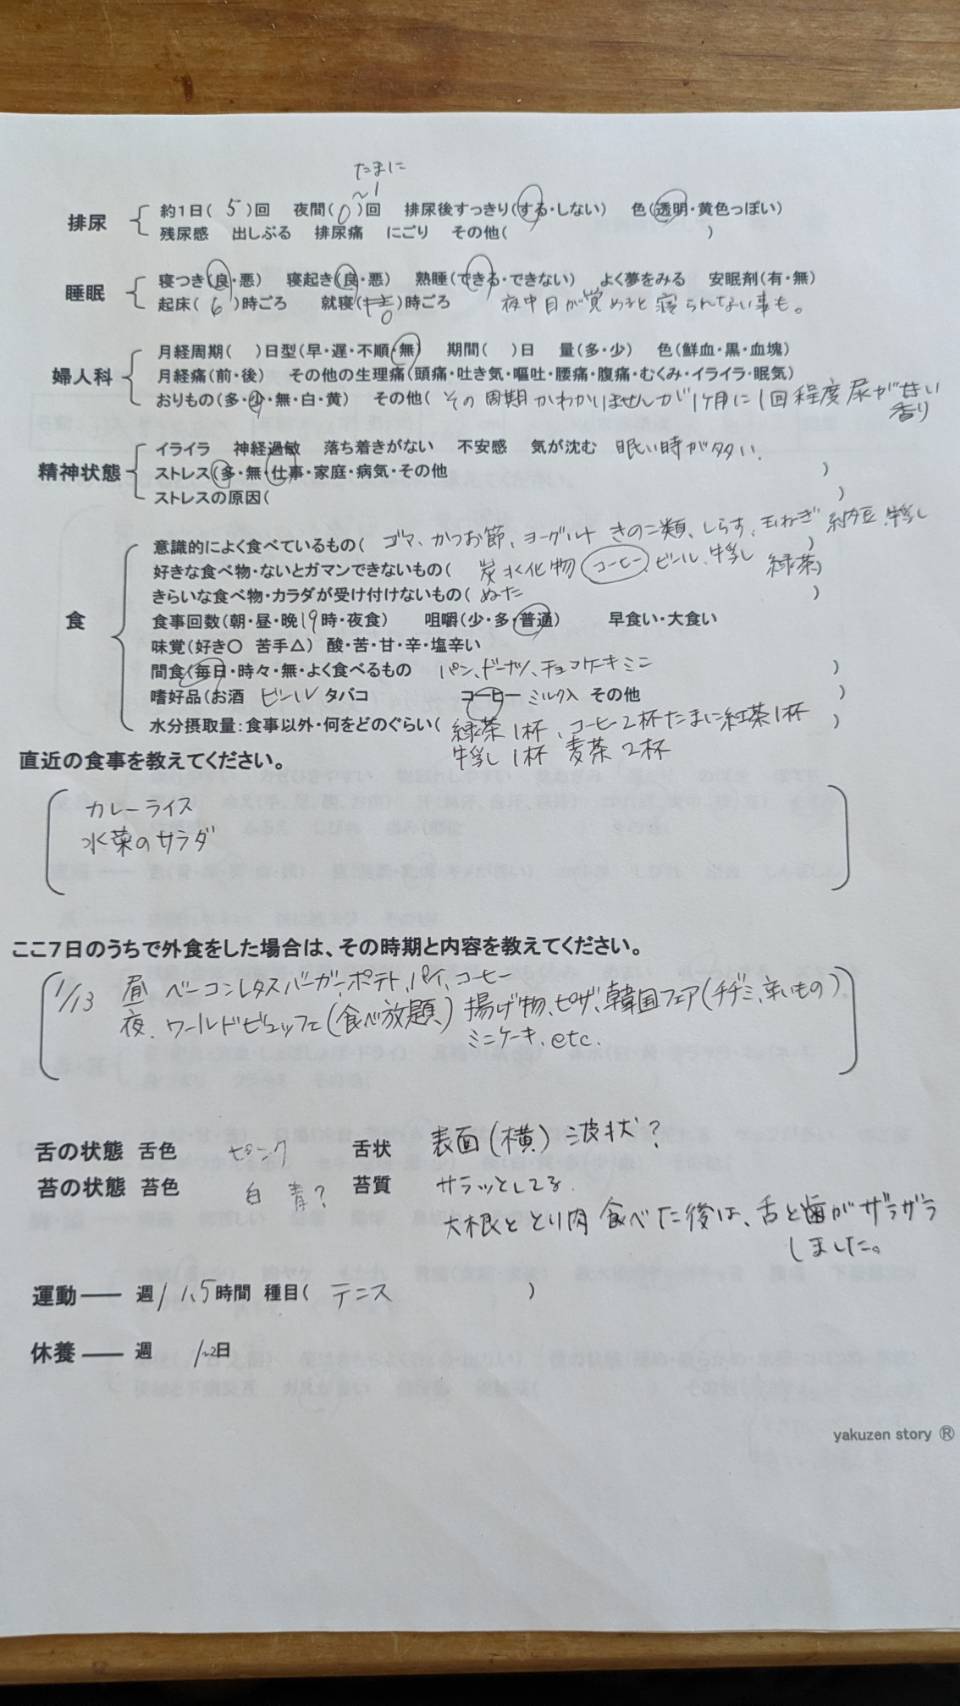 たまに
〜1
排尿 約1日( 5 )回 夜間( 0 )回 排尿後すっきり(する・しない) 色(透明・黄色っぽい)
残尿感 出しぶる 排尿痛 にごり その他( )
睡眠 寝つき(良・悪) 寝起き(良・悪) 熟睡(できる・できない) よく夢をみる 安眠剤(有・無)
起床( 6 )時ごろ 就寝( 0 )時ごろ 夜中目が覚めると寝られない事も。
婦人科 月経周期( )日型(早・遅・不順・無) 期間( )日 量(多・少) 色(鮮血・黒・血塊)
月経痛(前・後) その他の生理痛(頭痛・吐き気・嘔吐・腰痛・腹痛・むくみ・イライラ・眠気)
おりもの(多・少・無・白・黄) その他( その周期かわかいませんが1ヶ月に1回程度尿が甘い
香り
精神状態 イライラ 神経過敏 落ち着きがない 不安感 気が沈む 眠い時が多い.
ストレス(多・無・仕事・家庭・病気・その他 )
ストレスの原因( )
食 意識的によく食べているもの( ゴマ、かつお節、ヨーグルト きのこ類、しらす、玉ねぎ 納豆、牛乳 )
好きな食べ物・ないとガマンできないもの( 炭水化物 コーヒー、ビール、牛乳 緑茶)
きらいな食べ物・カラダが受け付けないもの( ぬた )
食事回数(朝・昼・晩19時・夜食) 咀嚼(少・多・普通) 早食い・大食い
味覚(好き〇 苦手△) 酸・苦・甘・辛・塩辛い
間食(毎日・時々・無・よく食べるもの パン、ドーナツ、チョコケーキミニ )
嗜好品(お酒 ビール タバコ コーヒー ミルク入 その他 )
水分摂取量:食事以外・何をどのぐらい( 緑茶1杯、コーヒー2杯たまに紅茶1杯 )
牛乳1杯 麦茶2杯
直近の食事を教えてください。
カレーライス
水菜のサラダ
ここ7日のうちで外食をした場合は、その時期と内容を教えてください。
1/13 昼 ベーコンレタスバーガー、ポテト、パイ、コーヒー
夜、ワールドビュッフェ(食べ放題、) 揚げ物、ピザ、韓国フェア(チヂミ、辛いもの)
ミニケーキ、etc.
舌の状態 舌色 ピンク 舌状 表面(横)波状?
苔の状態 苔色 白 青? 苔質 サラッとしてる.
大根ととり肉食べた後は、舌と歯がザラザラ
しました。
運動―― 週/1.5時間 種目( テニス )
休養―― 週 1~2日
yakuzen story ®